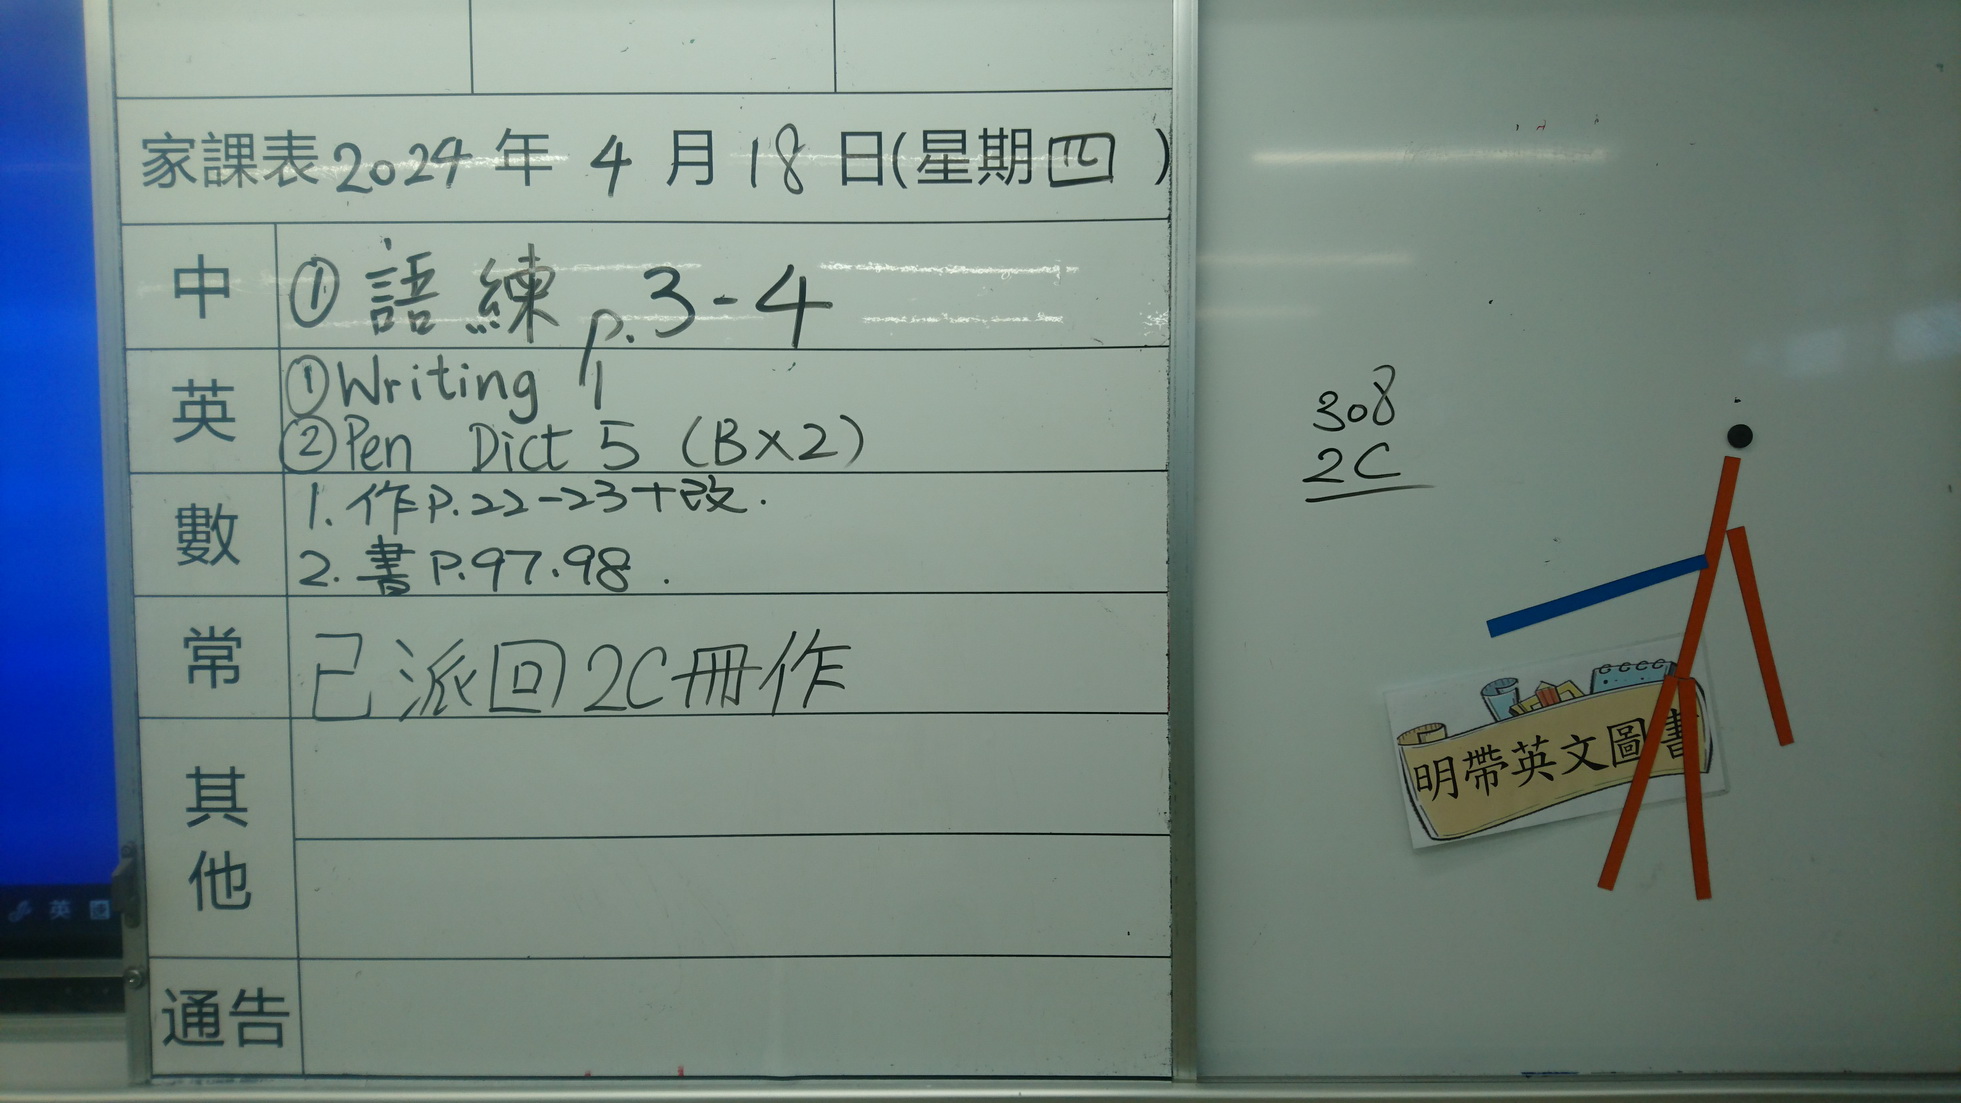 家課表2024年 4月18日(星期四)
中
①語練 p.3-4
英
①Writing 1
②Pen Dict 5 (B×2)
數
1. 作P.22-23+改.
2. 書P.97.98.
常
已派回2C冊作
其他
通告
308
2C
明帶英文圖書
英